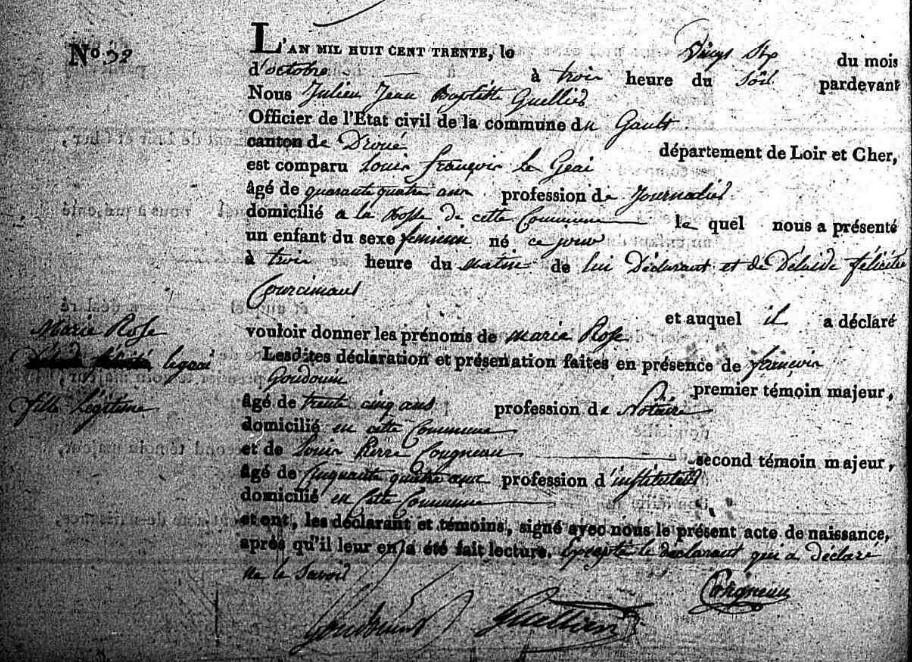 N.° 32
L'AN MIL HUIT CENT TRENTE, le Vingt Six du mois
d'octobre à trois heure du Soir pardevant
Nous Julien Jean Baptiste Guellier
Officier de l'Etat civil de la commune du Gault
canton de Droué département de Loir et Cher,
est comparu Louis françois Le Geai
âgé de quarante quatre ans profession de Journalier
domicilié a la Bosse de cette Commune le quel nous a présenté
un enfant du sexe feminin né ce jour
à trois heure du matin de lui Déclarant et de Délaide félicité
Courcimault
et auquel il a déclaré
vouloir donner les prénoms de Marie Rose
Marie Rose
legeai
fille Légitime
Lesdites déclaration et présenation faites en présence de françois
Goudouin premier témoin majeur,
âgé de trente cinq ans profession de Notaire
domicilié en cette Commune
et de Louis Pierre Cougneau second témoin majeur,
âgé de Cinquante quatre ans profession d'instituteur
domicilié en Cette Commune
et ont, les déclarant et témoins, signé avec nous le présent acte de naissance,
après qu'il leur en a été fait lecture, Excepté le declarant qui a déclaré
ne le Savoir
Goudouin Guellier